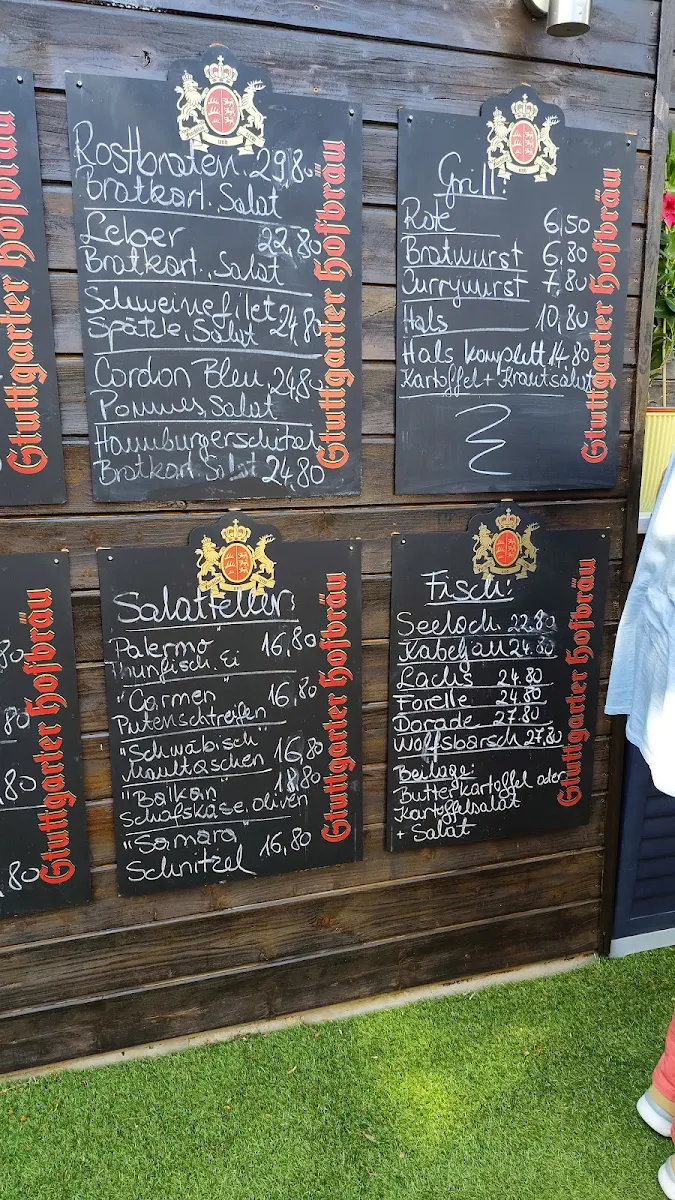 Stuttgarter Hofbräu
Rostbraten, 29,80
Bratkart., Salat
Leber 22,80
Bratkart., Salat
Schweinefilet 24,80
Spätzle, Salat
Cordon Bleu, 24,80
Pommes, Salat
Hamburgerschnitzel
Bratkart. Salat 24,80
Stuttgarter Hofbräu
Grill:
Rote 6,50
Bratwurst 6,80
Currywurst 7,80
Hals 10,80
Hals komplett 14.80
Kartoffel + Krautsalat
Stuttgarter Hofbräu
80
80
80
80
Stuttgarter Hofbräu
Salatteller:
"Palermo" 16,80
Thunfisch, Ei
"Carmen" 16,80
Putenschtreifen
"Schwäbisch" 16,80
Maultaschen
"Balkan" 18,80
Schafskäse, oliven
"Samara" 16,80
Schnitzel
Stuttgarter Hofbräu
Fisch:
Seeloch. 22.80
Kabeljau 24.80
Lachs 24.80
Forelle 24.80
Dorade 27.80
Wolfsbarsch 27.80
Beilage:
Butterkartoffel oder
Kartoffelsalat
+ Salat
Stuttgarter Hofbräu